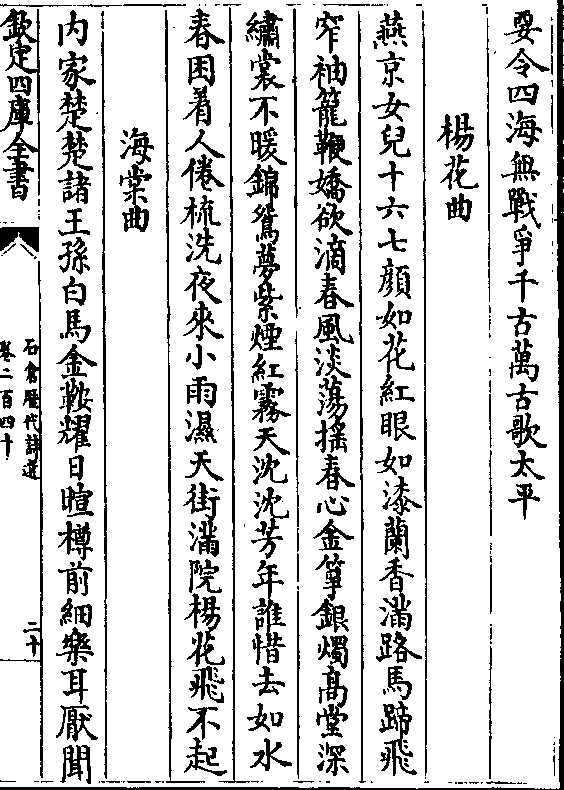 要令四海無戰爭千古萬古歌太平
楊花曲
燕京女兒十六七顔如花紅眼如漆蘭香滿路馬蹄飛
窄袖籠鞭嬌欲滴春風淡蕩揺春心金箏銀燭高堂深
繡裳不暖錦鴛夢紫煙紅霧天沈沈芳年誰惜去如水
春困着人倦梳洗夜來小雨濕天街滿院楊花飛不起
海棠曲
内家楚楚諸王孫白馬金鞍耀日暄樽前細樂耳厭聞
欽定四庫全書
石倉歷代詩選
卷二百四十
二十